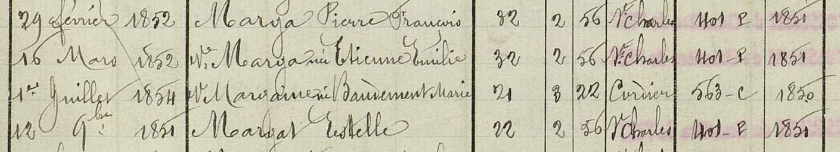 29 février 1852 Marga Pierre François 32 2 56 St Charles 401 P 1851
16 Mars 1852 Ve Marga née Etienne Emilie 32 2 56 St Charles 401 P 1851
1er Juillet 1854 Ve Margaine née Baudement Marie 21 3 22 Cordier 563 - C 1850
12 9bre 1851 Margat Estelle 22 2 56 St Charles 401 - P 1851